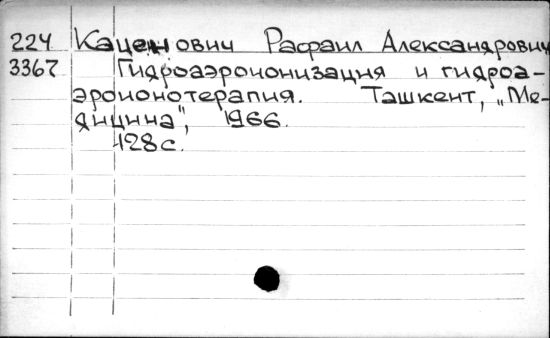 224 Каценович Рафаил Александрович
3367 Гидроаэроионизация и гидроа-
эроионотерапия. Ташкент, „Ме-
дицина", 1966.
428с.